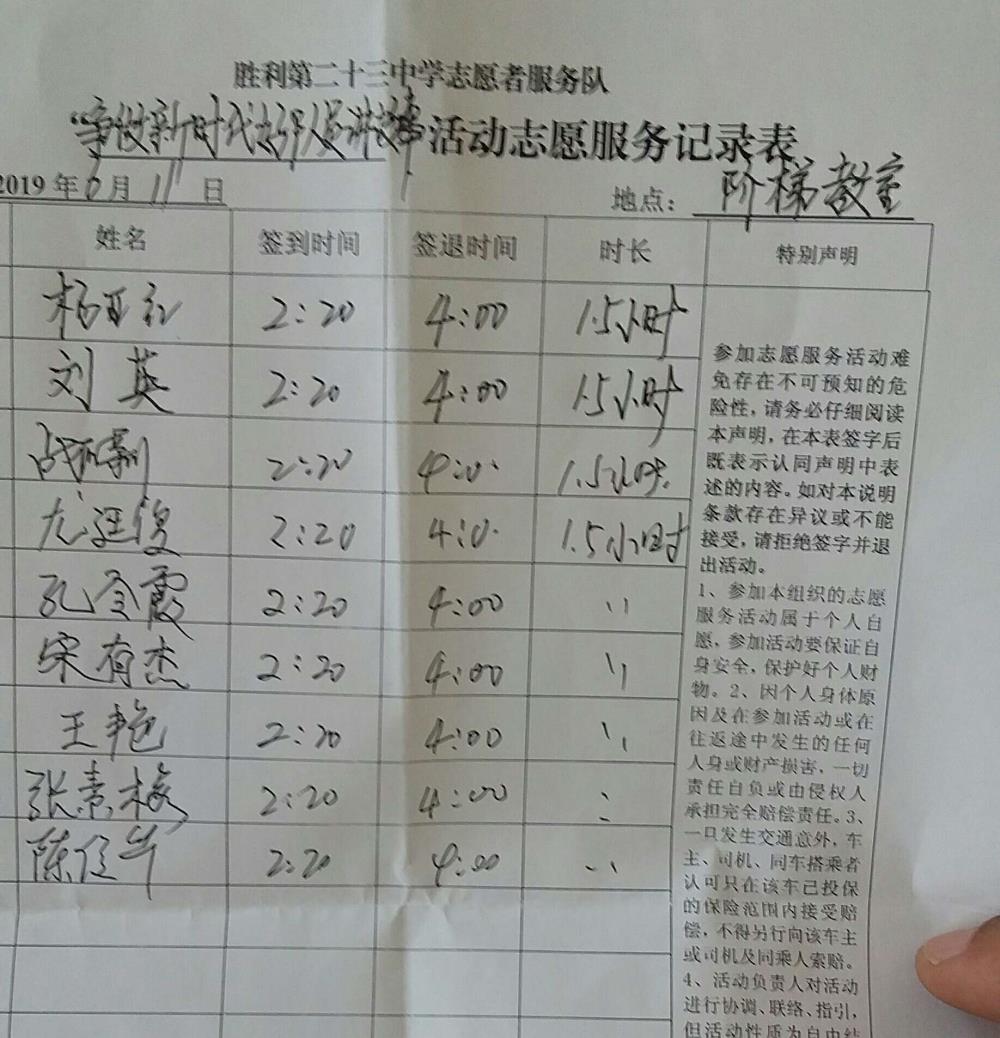 胜利第二十三中学志愿者服务队
“争做新时代好队员讲故事 活动志愿服务记录表
2019年6月11日 地点：阶梯教室
姓名 签到时间 签退时间 时长 特别声明
2:20 4:00 1.5小时
刘英 2:20 4:00 1.5小时
2:20 4:0· 1.5小时
尤延俊 2:20 4:0· 1.5小时
孔令霞 2:20 4:00 〃
宋有杰 2:20 4:00 〃
王艳 2:20 4:00 〃
张素梅 2:20 4:00 〃
2:20 4:00 〃
参加志愿服务活动难
免存在不可预知的危
险性，请务必仔细阅读
本声明，在本表签字后
既表示认同声明中表
述的内容。如对本说明
条款存在异议或不能
接受，请拒绝签字并退
出活动。
1、参加本组织的志愿
服务活动属于个人自
愿，参加活动要保证自
身安全，保护好个人财
物。2、因个人身体原
因及在参加活动或在
往返途中发生的任何
人身或财产损害，一切
责任自负或由侵权人
承担完全赔偿责任。3、
一旦发生交通意外，车
主、司机、同车搭乘者
认可只在该车已投保
的保险范围内接受赔
偿，不得另行向该车主
或司机及同乘人索赔。
4、活动负责人对活动
进行协调、联络、指引，
但活动性质为自由结